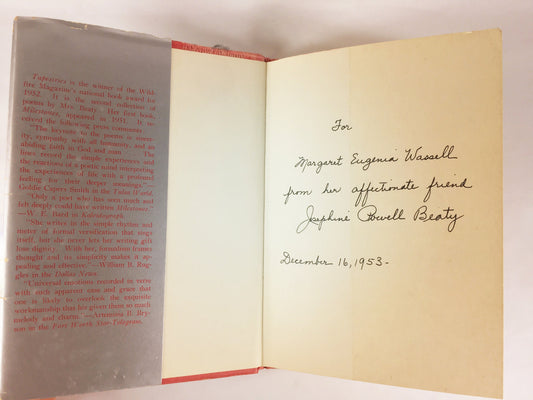 Tapestries is the winner of the Wild-
fire Magazine's national book award for
1952. It is the second collection of
poems by Mrs. Beaty. Her first book,
Milestones, appeared in 1951. It re-
ceived the following press comments:
"The keynote to the poems is sincer-
ity, sympathy with all humanity, and an
abiding faith in God and man . . . The
lines record the simple experiences and
the reactions of a poetic mind interpreting
the experiences of life with a profound
feeling for their deeper meanings."—
Goldie Capers Smith in the Tulsa World.
"Only a poet who has seen much and
felt deeply could have written Milestones."
—W. E. Bard in Kaleidograph.
"She writes in the simple rhythm and
meter of formal versification that sings
itself, but she never lets her writing gift
lose dignity. With her, formalism frames
thought and its simplicity makes it ap-
pealing and effective."—William B. Rug-
gles in the Dallas News.
"Universal emotions recorded in verse
with such apparent ease and grace that
one is likely to overlook the exquisite
workmanship that has given them so much
melody and charm."—Artemisia B. Bry-
son in the Fort Worth Star-Telegram.
For
Margaret Eugenia Wassell
from her affectionate friend
Josephine Powell Beaty
December 16, 1953-